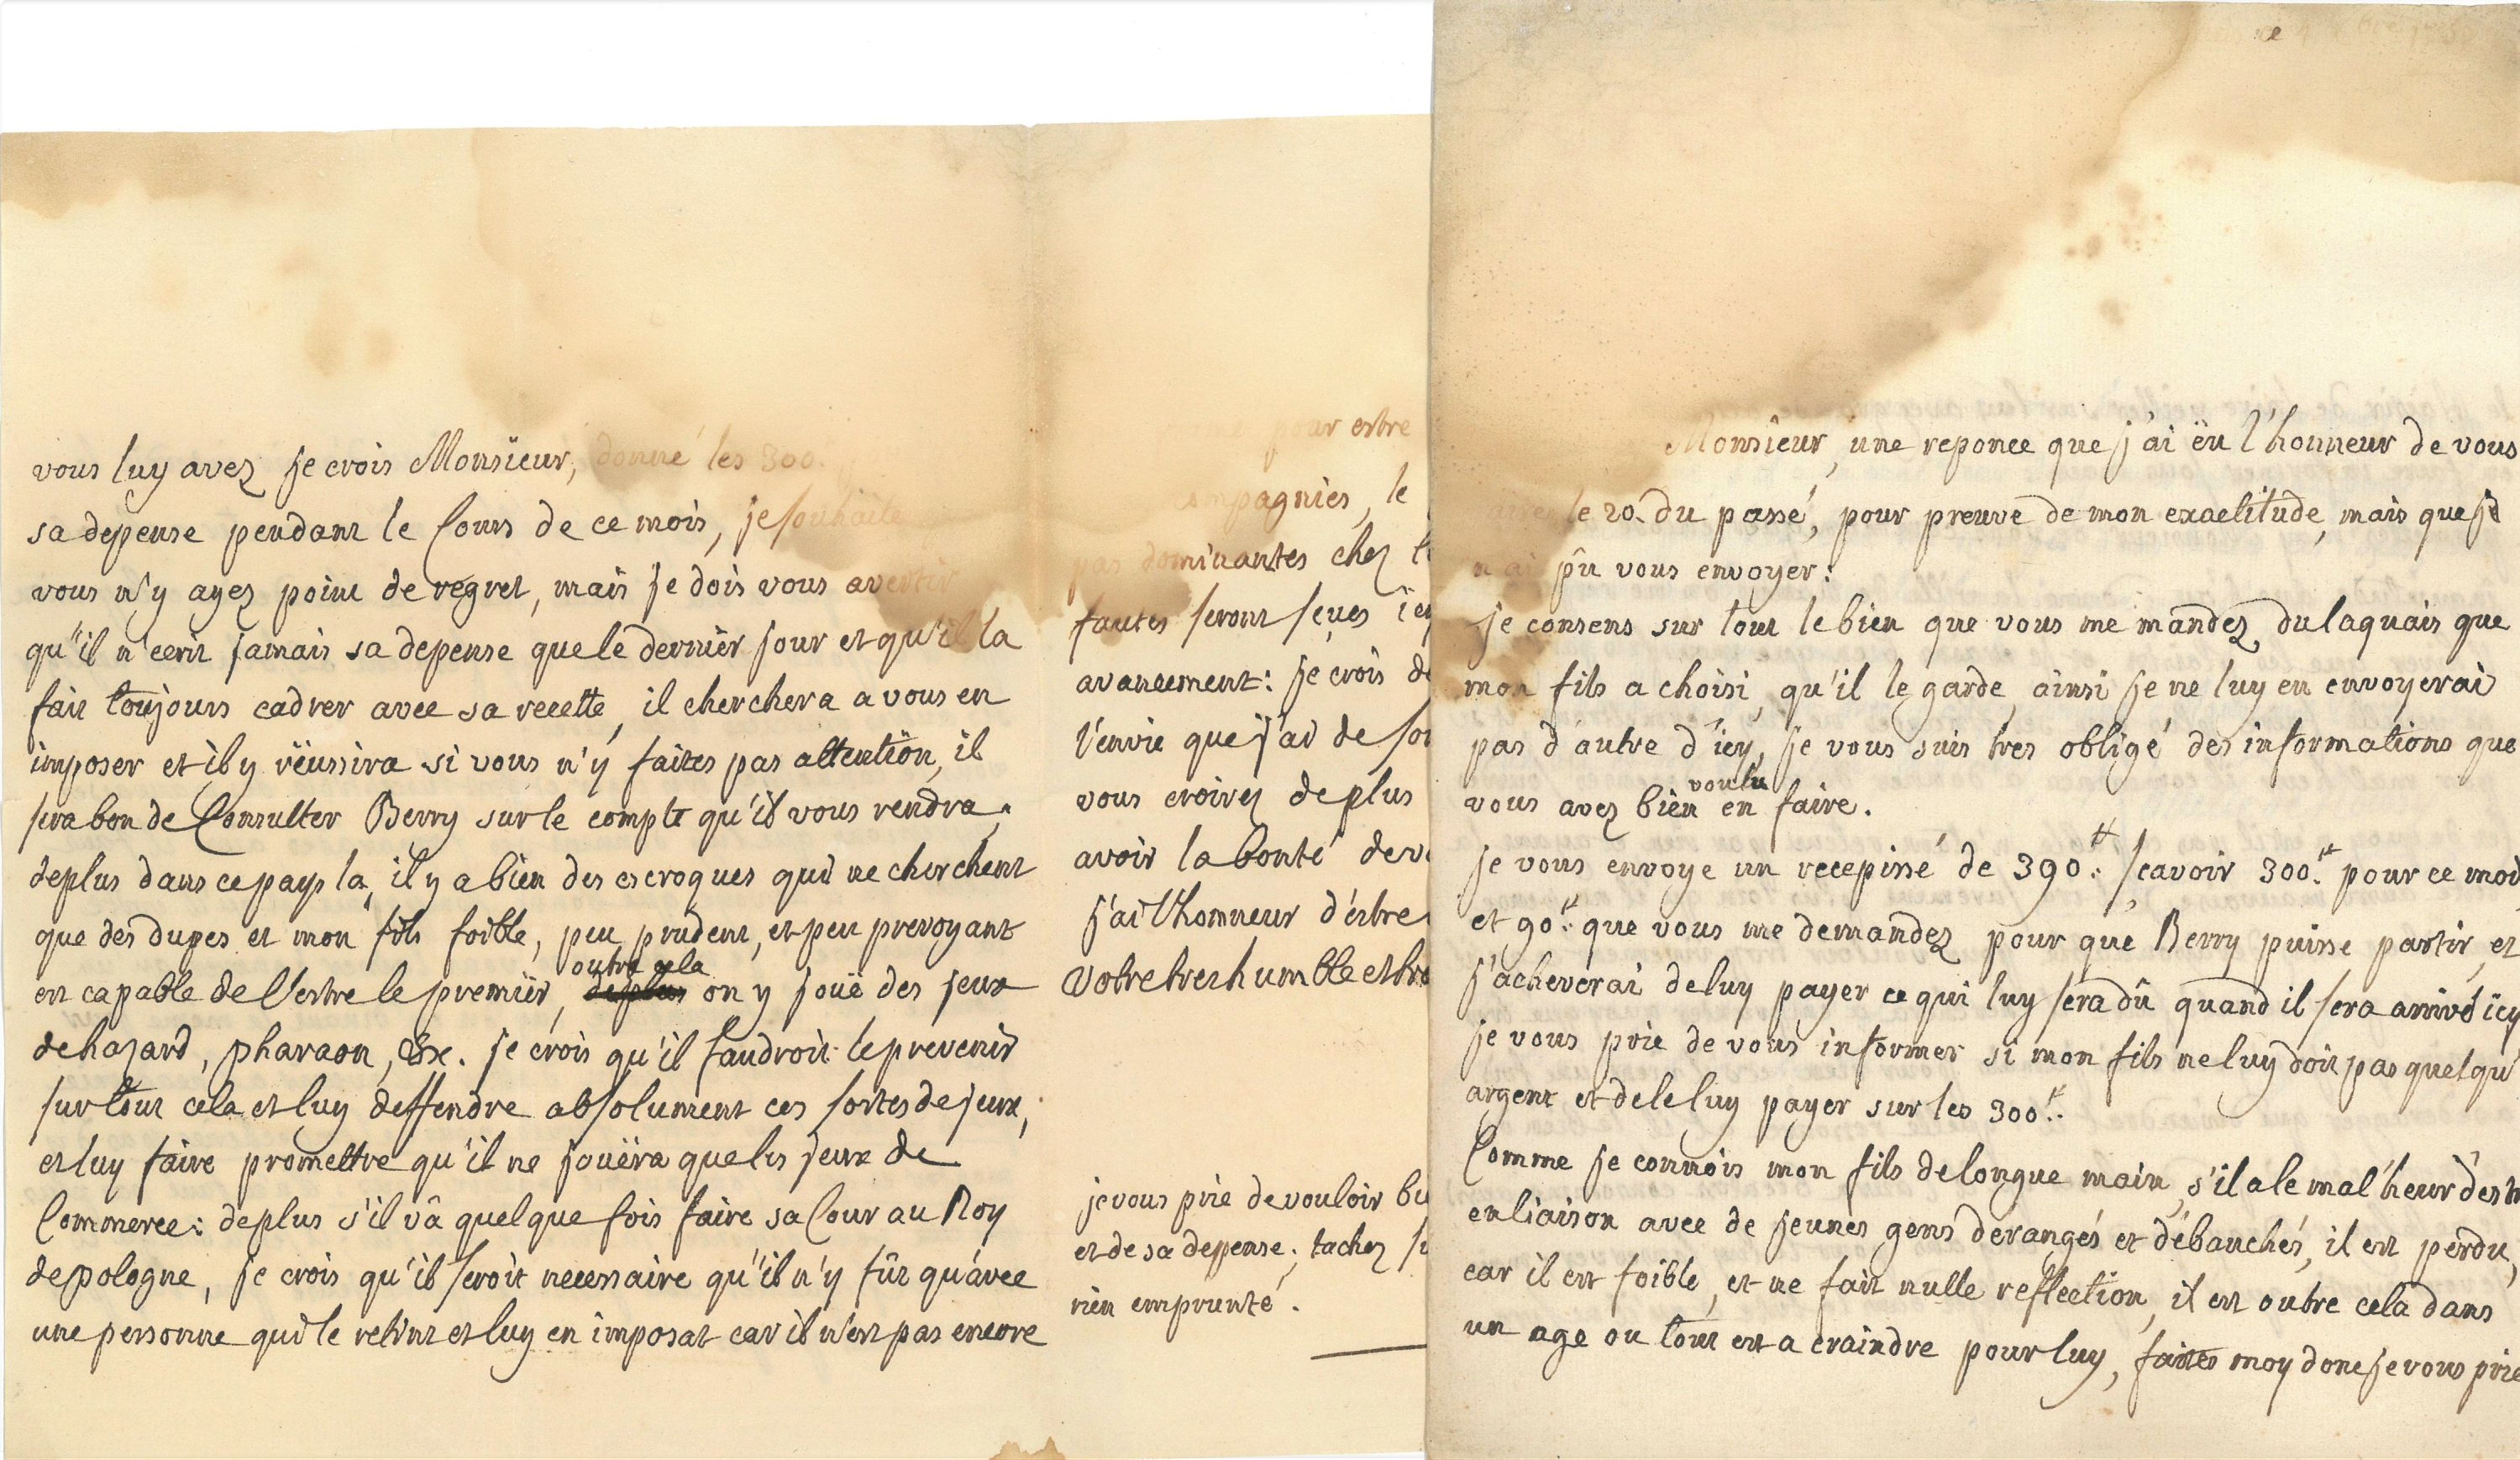 vous luy avez je crois Monsieur, donné les 300.
sa depense pendant le Cours de ce mois, je souhaite
vous n'y ayez point de regret, mais je dois vous avertir
qu'il n'ecrit jamais sa depense que le dernier jour et qu'il la
fait toujours cadrer avec sa recette, il cherchera a vous en
imposer et il y rëussira si vous n'y faites pas attention, il
sera bon de Consulter Berry sur le compte qu'il vous rendra,
deplus dans ce pays la, il y a bien des escroques qui ne cherchent
que des dupes et mon fils foible, peu prudent, et peu prevoyant
est capable de l'estre le premier, deplus outre cela on y jouë des jeux
de hazard, pharaon, &c. je crois qu'il faudroit le prevenir
sur tout cela et luy deffendre absolument ces sortes de jeux,
et luy faire promettre qu'il ne jouëra que les jeux de
Commerce: deplus s'il vâ quelque fois faire sa Cour au Roy
de pologne, je crois qu'il seroit necessaire qu'il n'y fût qu'avec
une personne qui le retint et luy en imposat car il n'est pas encore
pour estre
compagnies, le
pas dominantes chez
fautes seront sçues icy
avancement: je crois de
l'envie que j'ai de
vous croirez deplus
avoir la bonté de
j'ai l'honneur d'estre
Votre tres humble et
je vous prie de vouloir
et de sa depense; tachez
rien emprunté.
Monsieur, une reponce que j'ai ëu l'honneur de vous
le 20. du passé, pour preuve de mon exactitude, mais que je
n'ai pû vous envoyer:
je consens sur tout le bien que vous me mandez du laquais que
mon fils a choisi, qu'il le garde, ainsi je ne luy en envoyerai
pas d'autre d'icy, je vous suis tres obligé des informations que
vous avez bien voulu en faire.
je vous envoye un recepissé de 390.₶ sçavoir 300.₶ pour ce mois
et 90.₶ que vous me demandez pour que Berry puisse partir, et
j'acheverai de luy payer ce qui luy sera dû quand il sera arrivé icy
je vous prie de vous informer si mon fils ne luy doit pas quelqu'
argent et de le luy payer sur les 300₶.
Comme je connois mon fils de longue main, s'il a le mal'heur d'estre
en liaison avec de jeunes gens derangés et débauchés, il est perdu,
car il est foible, et ne fait nulle reflection, il est outre cela dans
un age ou tout est a craindre pour luy, faites moy donc je vous prie